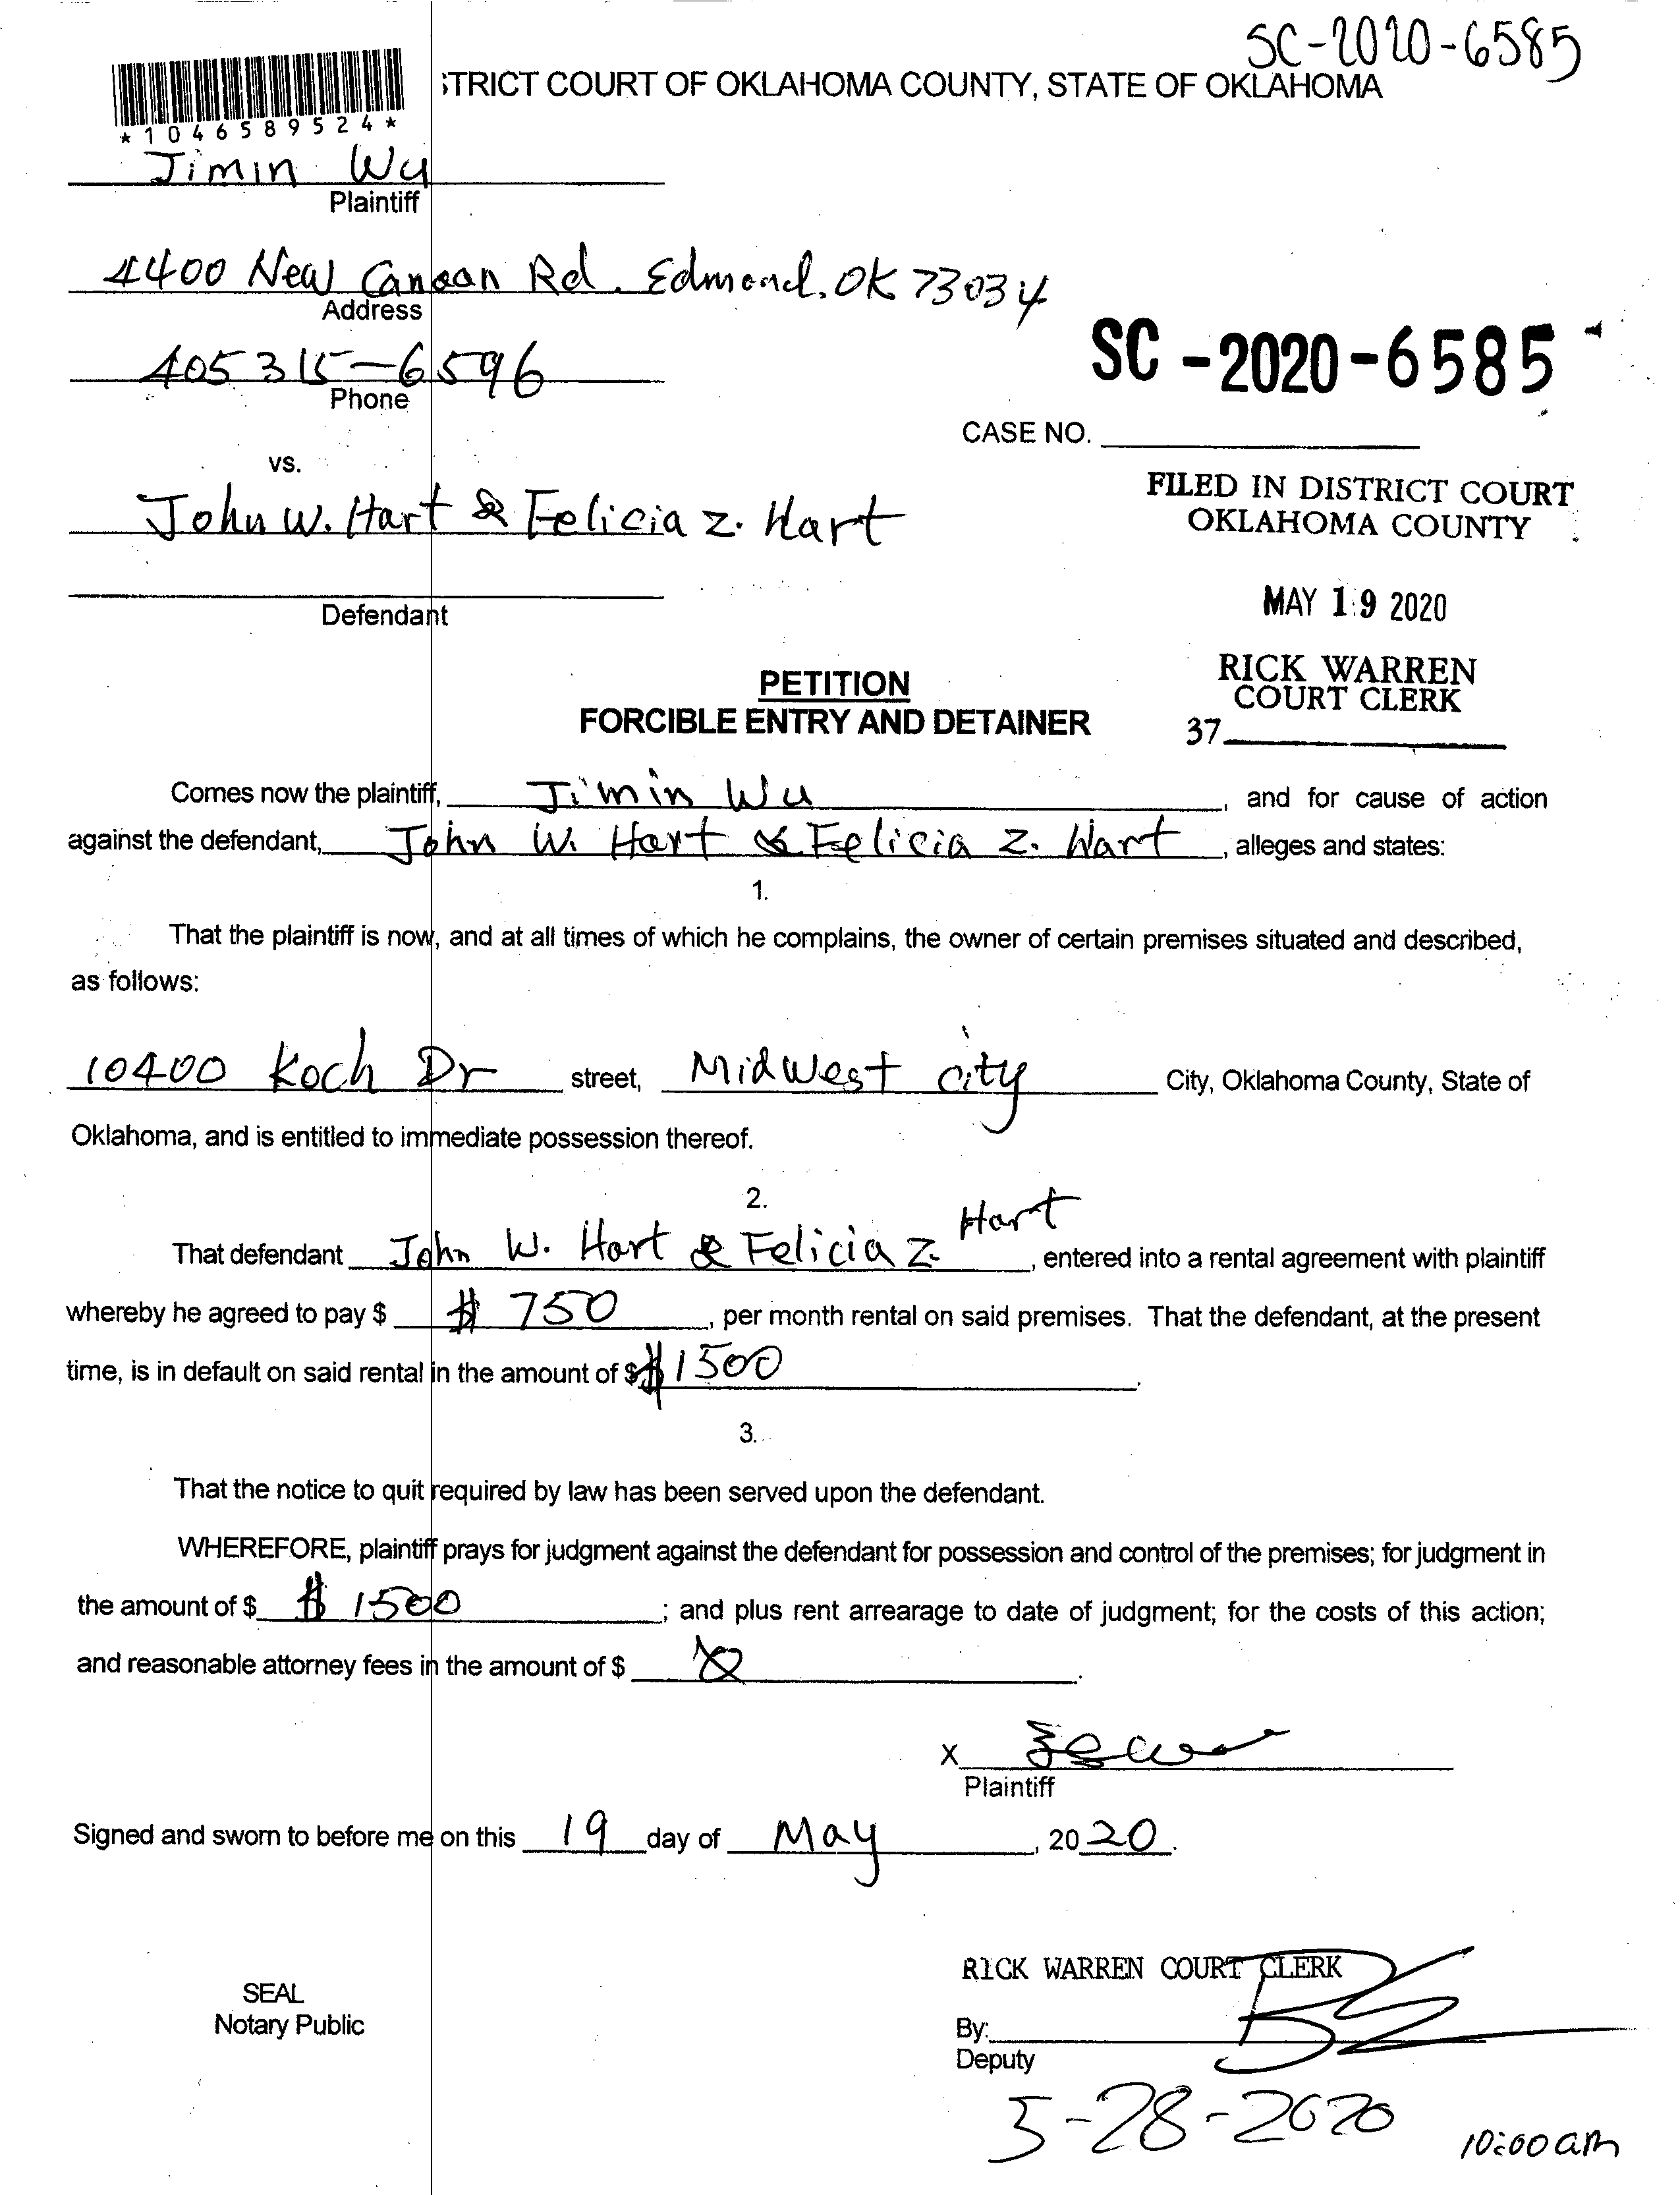 SC-2020-6585
TRICT COURT OF OKLAHOMA COUNTY, STATE OF OKLAHOMA
*1046589524*
Jimin Wu
Plaintiff
4400 New Canaan Rd. Edmond, OK 73034
Address
405 315-6596
Phone
SC-2020-6585
CASE NO.
vs.
John W. Hart & Felicia Z. Hart
FILED IN DISTRICT COURT
OKLAHOMA COUNTY
Defendant
MAY 19 2020
RICK WARREN
COURT CLERK
37
PETITION
FORCIBLE ENTRY AND DETAINER
Comes now the plaintiff, Jimin Wu, and for cause of action
against the defendant, John W. Hart & Felicia Z. Hart, alleges and states:
1.
That the plaintiff is now, and at all times of which he complains, the owner of certain premises situated and described,
as follows:
10400 Koch Dr street, Midwest city City, Oklahoma County, State of
Oklahoma, and is entitled to immediate possession thereof.
2.
That defendant John W. Hart & Felicia Z. Hart, entered into a rental agreement with plaintiff
whereby he agreed to pay $ $ 750, per month rental on said premises. That the defendant, at the present
time, is in default on said rental in the amount of $ $1500.
3.
That the notice to quit required by law has been served upon the defendant.
WHEREFORE, plaintiff prays for judgment against the defendant for possession and control of the premises; for judgment in
the amount of $ $ 1500; and plus rent arrearage to date of judgment; for the costs of this action;
and reasonable attorney fees in the amount of $
X
Plaintiff
Signed and sworn to before me on this 19 day of May, 2020.
RICK WARREN COURT CLERK
SEAL
Notary Public
By:
Deputy
5-28-2020 10:00 am